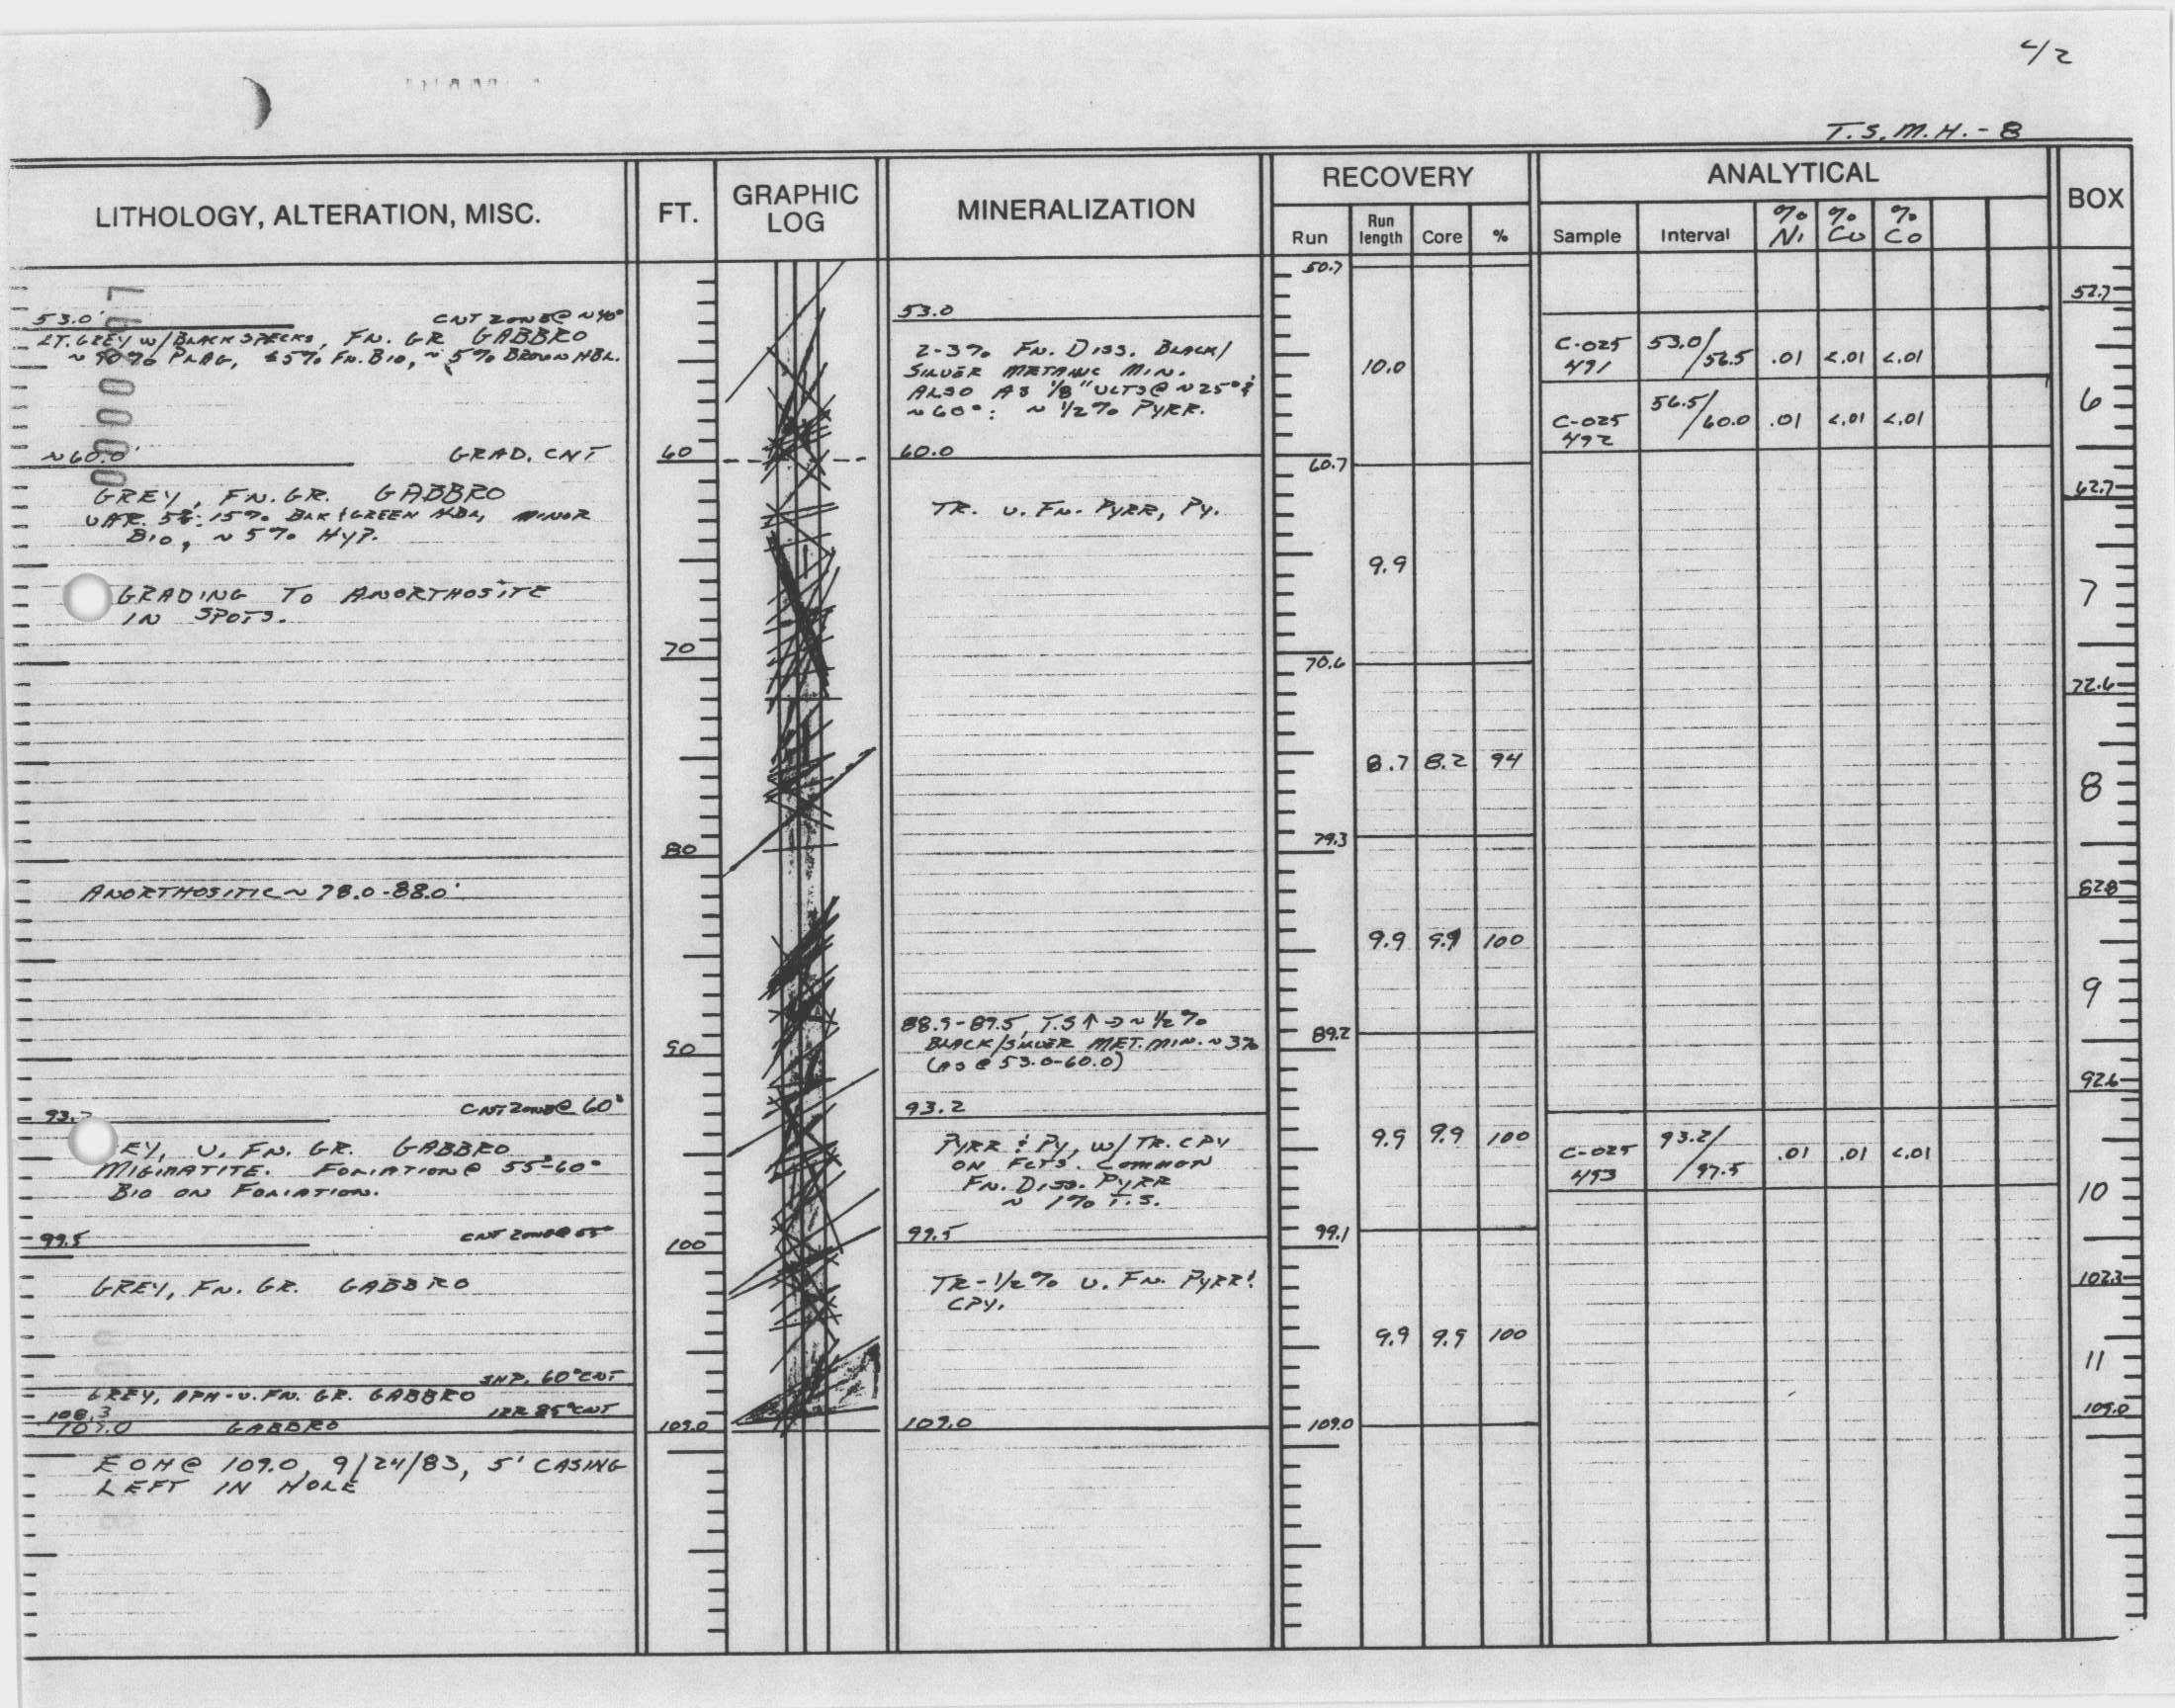 T.S.M.H.-8
LITHOLOGY, ALTERATION, MISC.
FT.
GRAPHIC
LOG
MINERALIZATION
RECOVERY
Run
Run
length
Core
%
ANALYTICAL
Sample
Interval
% Ni
% Cu
% Co
BOX
53.0' CNT ZONE @ ~40°
LT. GREY W/ BLACK SPECKS, FN. GR GABBRO
~90% PLAG, ±5% FN. BIO, ~5% BROWN HBL.
~60.0' GRAD. CNT
GREY, FN. GR. GABBRO
VAR. 5-15% BLK & GREEN HBL, MINOR
BIO, ~5% HYP.
GRADING TO ANORTHOSITE
IN SPOTS.
ANORTHOSITIC ~ 78.0-88.0'
CNT ZONE @ 60°
EY, V. FN. GR. GABBRO
MIGMATITE. FOLIATION @ 55-60°
BIO ON FOLIATION.
99.5 CNT ZONE @ 55°
GREY, FN. GR. GABBRO
SHP. 60° CNT
GREY, APH-V. FN. GR. GABBRO
108.3 IRR 85° CNT
109.0 GABBRO
EOH @ 109.0, 9/24/83, 5' CASING
LEFT IN HOLE
60
70
80
90
100
109.0
53.0
2-3% FN. DISS. BLACK/
SILVER METALLIC MIN.
ALSO AS 1/8" VLTS @ ~25° &
~60°: ~ 1/2% PYRR.
60.0
TR. V. FN. PYRR, PY.
88.5-89.5, T.S ↑ → ~ 1/2%
BLACK/SILVER MET. MIN. ~3%
(AS @ 53.0-60.0)
93.2
PYRR & PY, W/ TR. CPY
ON FCTS. COMMON
FN. DISS. PYRR
~ 1% T.S.
99.5
TR-1/2% V. FN. PYRR &
CPY.
109.0
50.7
10.0
60.7
9.9
70.6
8.7 8.2 94
79.3
9.9 9.9 100
89.2
9.9 9.9 100
99.1
9.9 9.9 100
109.0
C-025
491 53.0/56.5 .01 <.01 <.01
C-025
492 56.5/60.0 .01 <.01 <.01
C-025
493 93.2/97.5 .01 .01 <.01
52.7
6
62.7
7
72.6
8
82.8
9
92.6
10
102.3
11
109.0